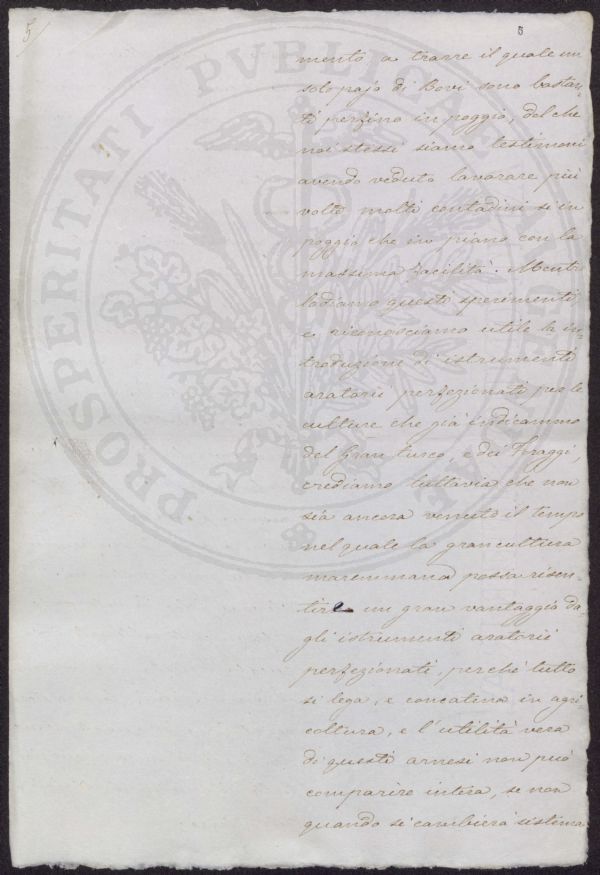 5
5
mento a trarre il quale un
solo pajo di Bovi sono bastan-
ti perfino in poggio, del che
noi stessi siamo testimoni
avendo veduto lavorare più
volte molti contadini sì in
poggio che in piano con la
massima facilità. Mentre
lodiamo questi sperimenti,
e riconosciamo utile la in-
troduzione di istrumenti
aratorii perfezionati per le
culture che già indicammo
del Gran turco, e dei Foraggi,
crediamo tuttavia che non
sia ancora venuto il tempo
nel quale la gran cultura
maremmana possa risen-
tire un gran vantaggio da
gli istrumenti aratorii
perfezionati, perchè tutto
si lega, e concatena in agri
coltura, e l'utilità vera
di questi arnesi non può
comparire intera, se non
quando si cambierà sistema
PROSPERITATI PVBLICAE AVGENDAE